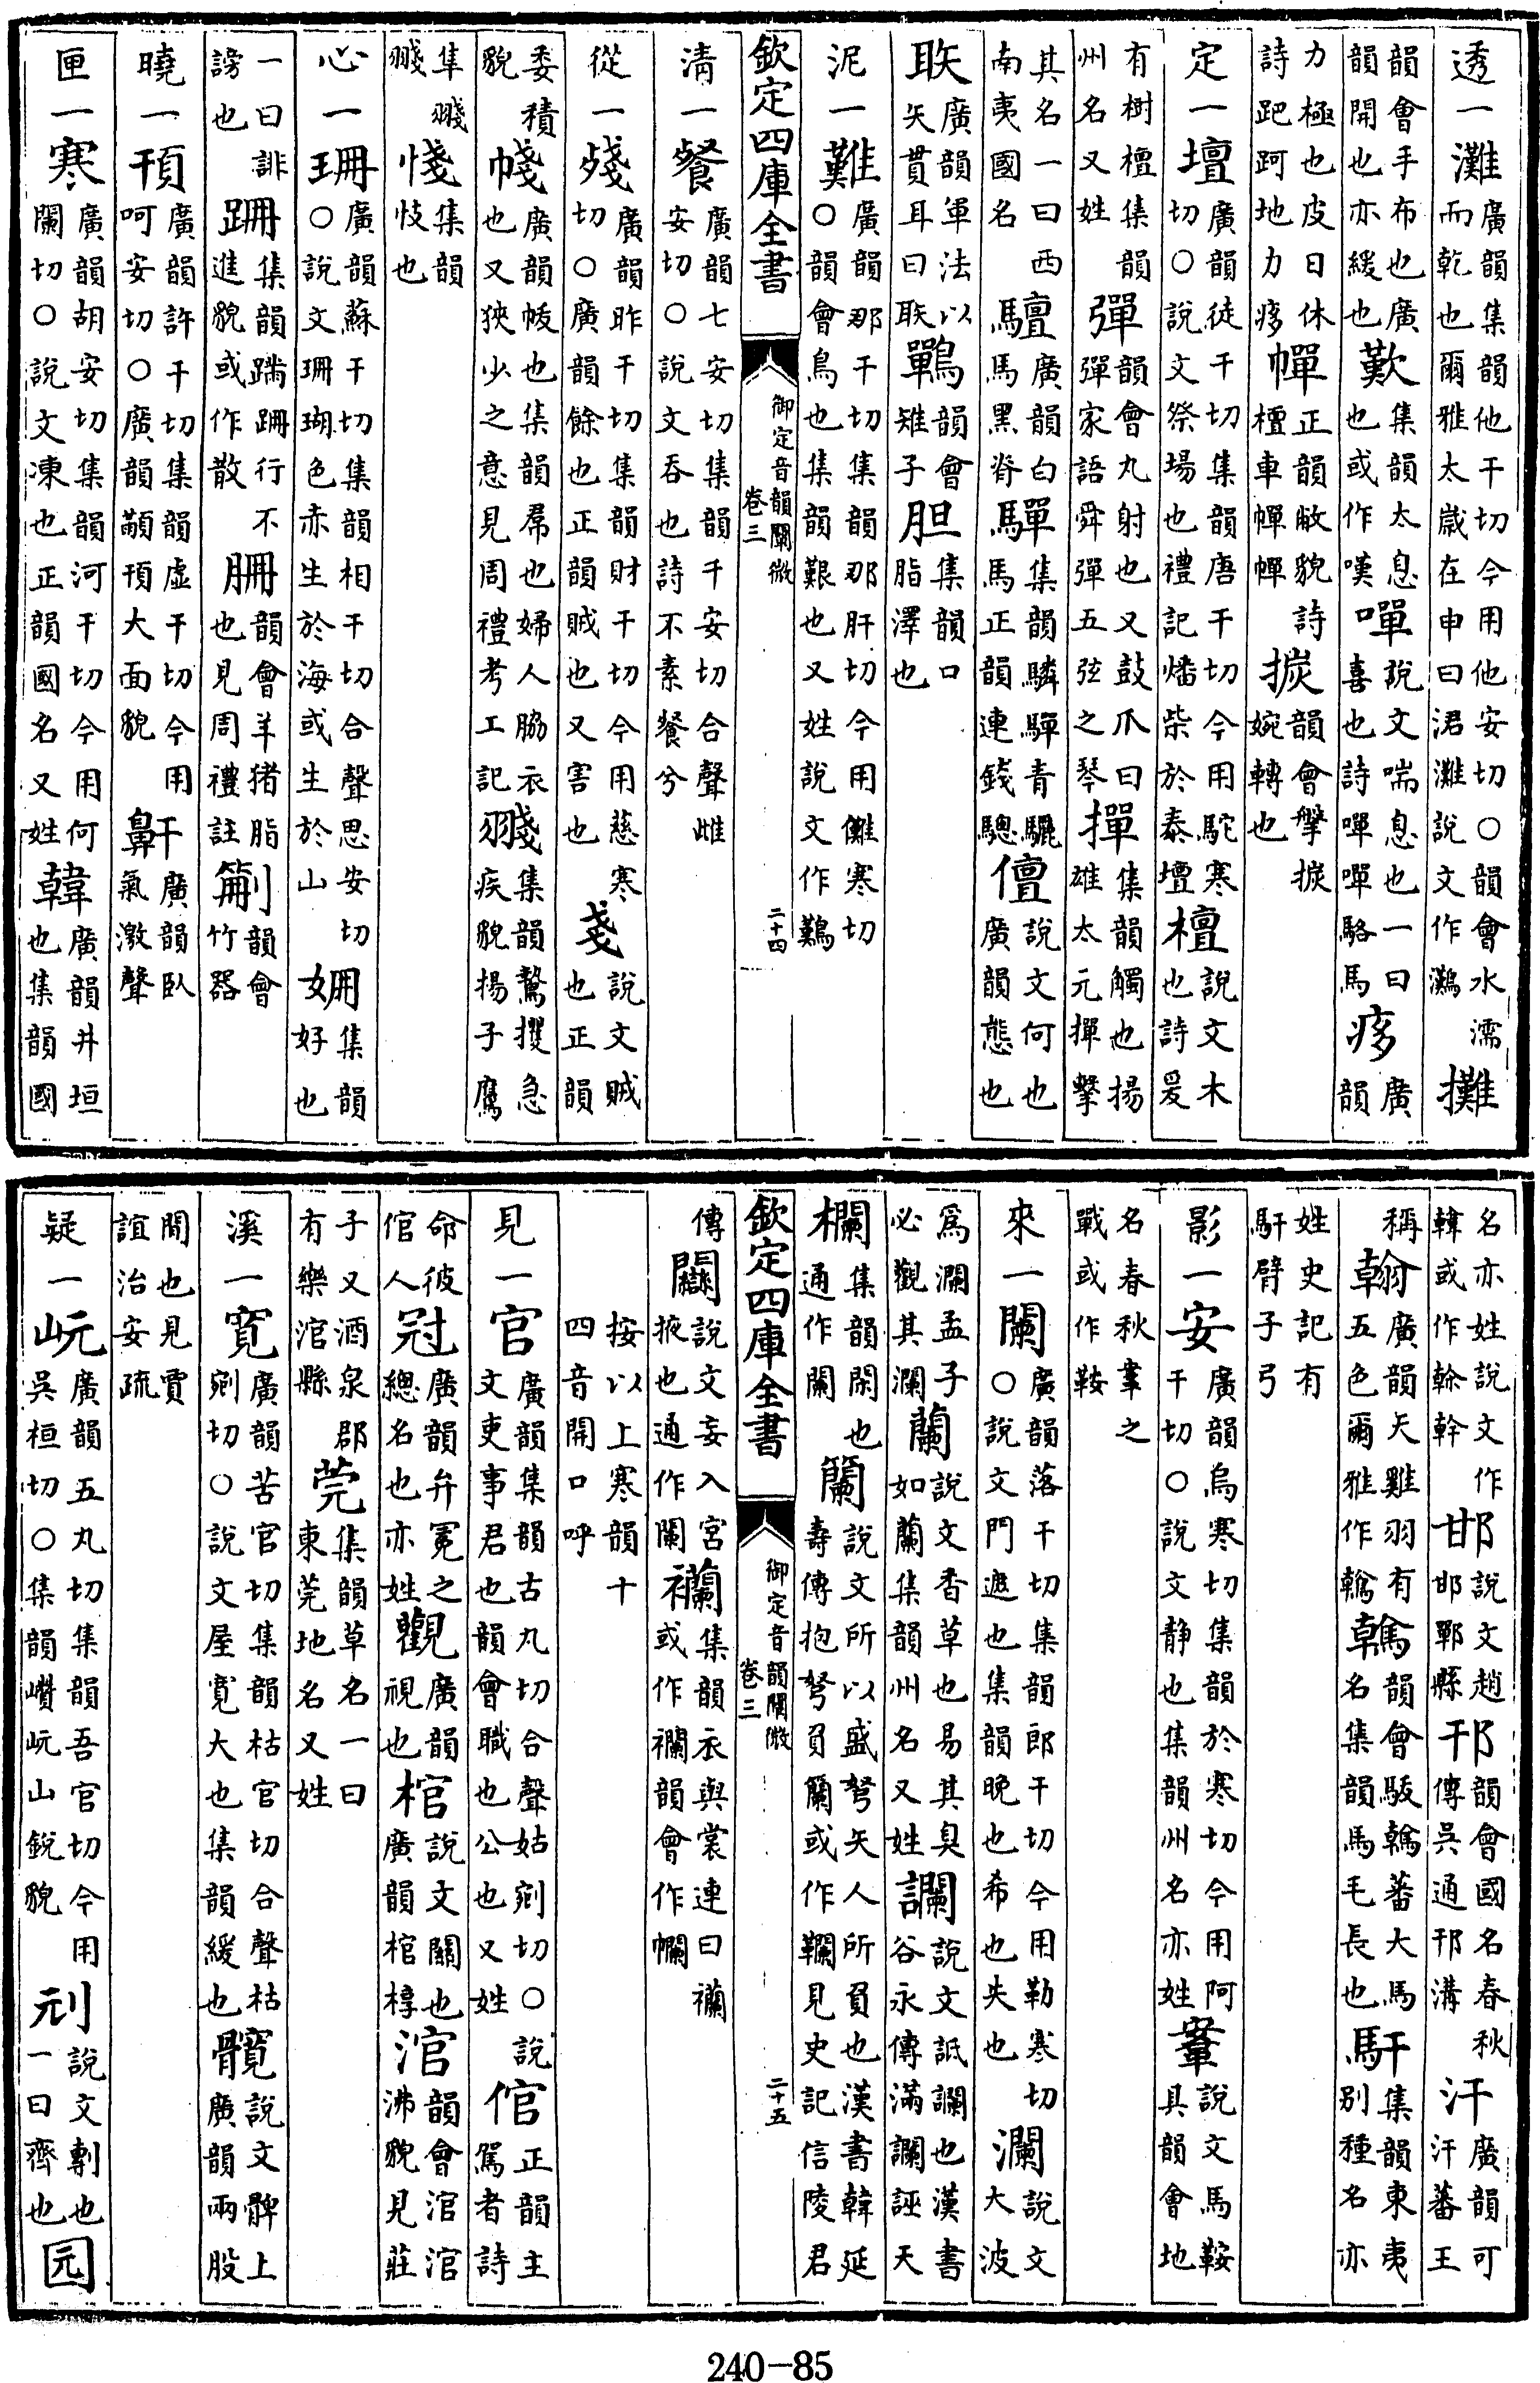 透一灘廣韻集韻他干切今用他安切○韻會水濡而乾也爾雅太歲在申曰涒灘說文作灘攤
韻會手布也廣韻開也亦緩也歎集韻太息也或作嘆嘽說文喘息也一曰喜也詩嘽嘽駱馬痑廣韻
力極也皮日休詩跁跒地力痑幝正韻敝貌詩檀車幝幝韻會婉轉也
定一壇廣韻徒干切集韻唐干切今用駝寒切○說文祭場也禮記燔柴於泰壇檀說文木也詩爰
有樹檀集韻州名又姓彈韻會丸射也又鼓爪曰彈家語舜彈五弦之琴撣集韻觸也揚雄太元撣擊
其名一曰西南夷國名驙廣韻白馬黑脊驒集韻驎驒青驪馬正韻連錢驄儃說文何也廣韻態也
聅廣韻軍法以矢貫耳曰聅鷤韻會雉子胆集韻口脂澤也
泥一難廣韻那干切集韻那肝切今用儺寒切○韻會鳥也集韻艱也又姓說文作𪄿
欽定四庫全書 御定音韻闡微 卷三 二十四
清一餐廣韻七安切集韻千安切合聲雌安切○說文吞也詩不素餐兮
從一殘廣韻昨干切集韻財干切今用慈寒切○廣韻餘也正韻賊也又害也戔說文賊也正韻
委積貌㡢廣韻帗也集韻帬也婦人脇衣也又狹少之意見周禮考工記𦑎集韻鷙攫急疾貌揚子鷹
隼𦑎𦑎㦮集韻忮也
心一珊廣韻蘇干切集韻相干切合聲思安切○說文珊瑚色赤生於海或生於山姍集韻好也
一曰誹謗也跚集韻蹣跚行不進貌或作散𦙱韻會羊豬脂也見周禮註𥬰韻會竹器
曉一頇廣韻許干切集韻虛干切今用呵安切○廣韻顢頇大面貌鼾廣韻臥氣激聲
匣一寒廣韻胡安切集韻河干切今用何闌切○說文凍也正韻國名又姓韓廣韻井垣也集韻國
名亦姓說文作韓或作榦幹邯說文趙邯鄲縣邗韻會國名春秋傳吳通邗溝汗廣韻可汗蕃王
稱翰廣韻天雞羽有五色爾雅作鶾䮧韻會駁䮧蕃大馬名集韻馬毛長也馯集韻東夷別種名亦
姓史記有馯臂子弓
影一安廣韻烏寒切集韻於寒切今用阿干切○說文静也集韻州名亦姓鞌說文馬鞍具韻會地
名春秋鞌之戰或作鞍
來一闌廣韻落干切集韻郎干切今用勒寒切○說文門遮也集韻晚也希也失也瀾說文大波
為瀾孟子必觀其瀾蘭說文香草也易其臭如蘭集韻州名又姓讕說文詆讕也漢書谷永傳滿讕誣天
欄集韻閑也通作闌籣說文所以盛弩矢人所負也漢書韓延壽傳抱弩負籣或作韊見史記信陵君
欽定四庫全書 御定音韻闡微 卷三 二十五
傳䦨說文妄入宮掖也通作闌襴集韻衣與裳連曰襴或作襴韻會作幱
按以上寒韻十四音開口呼
見一官廣韻集韻古丸切合聲姑剜切○說文吏事君也韻會職也公也又姓倌正韻主駕者詩
命彼倌人冠廣韻弁冕之總名也亦姓觀廣韻視也棺說文關也廣韻棺椁涫韻會涫涫沸貌見莊
子又酒泉郡有樂涫縣莞集韻草名一曰東莞地名又姓
溪一寬廣韻苦官切集韻枯官切合聲枯剜切○說文屋寬大也集韻緩也髖說文髀上廣韻兩股
間也見賈誼治安疏
疑一岏廣韻五丸切集韻吾官切今用吳桓切○集韻巑岏山銳貌刓說文剸也一曰齊也园
240-85